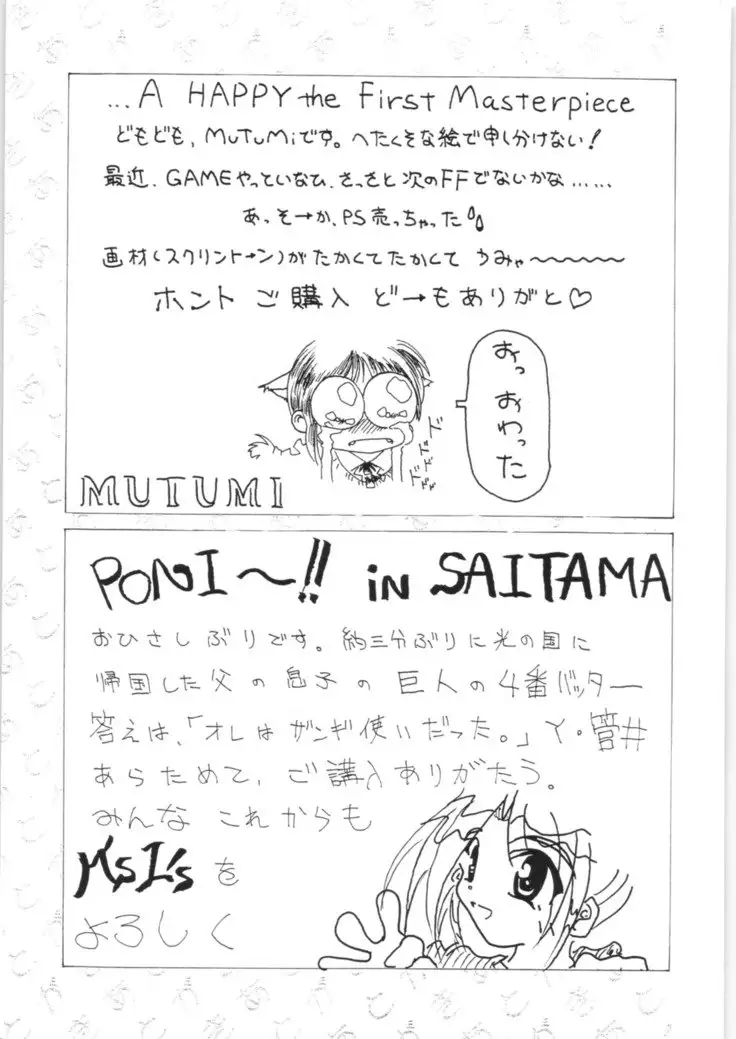 ...A HAPPY the First Masterpiece
どもども、MUTUMiです。へたくそな絵で申し分けない!
最近、GAMEやっていなひ、さっさと次のFFでないかな……
あっそーか、PS売っちゃった
画材(スクリントーン)がたかくてたかくて うみゃ〜〜〜〜〜
ホント ご購入 どーもありがと♡
おっ
おわった
ドドド
ドドド
MUTUMI
PONI〜!! in SAITAMA
おひさしぶりです。約三分ぶりに光の国に
帰国した父の息子の巨人の4番バッター
答えは、「オレはザンギ使いだった。」Y・管井
あらためて、ご講入ありがたう。
みんな これからも
M's I's を
よろしく